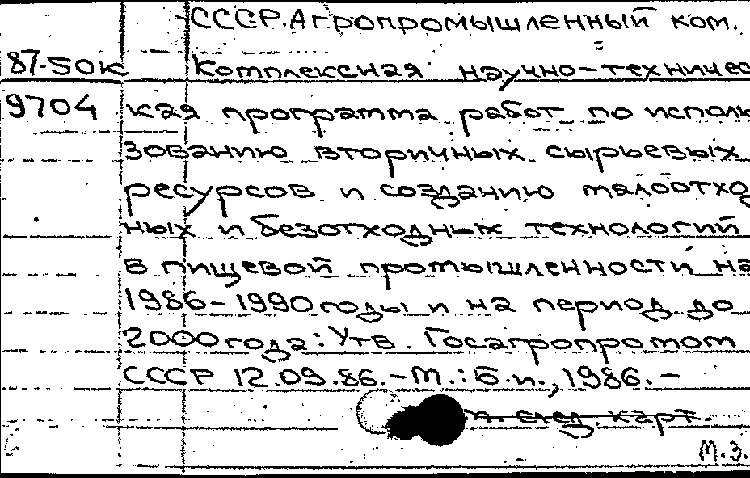 СССР. Агропромышленный ком.
87-50К Комплексная научно-техничес
9704 кая программа работ по исполь
зованию вторичных сырьевых
ресурсов и созданию малоотхо
ных и безотходных технологий
в пищевой промышленности на
1986-1990 годы и на период до
2000 года: Утв. Госагропромом
СССР 12.09.86.-М.: Б.и., 1986.-
см. след. карт.
М.З.